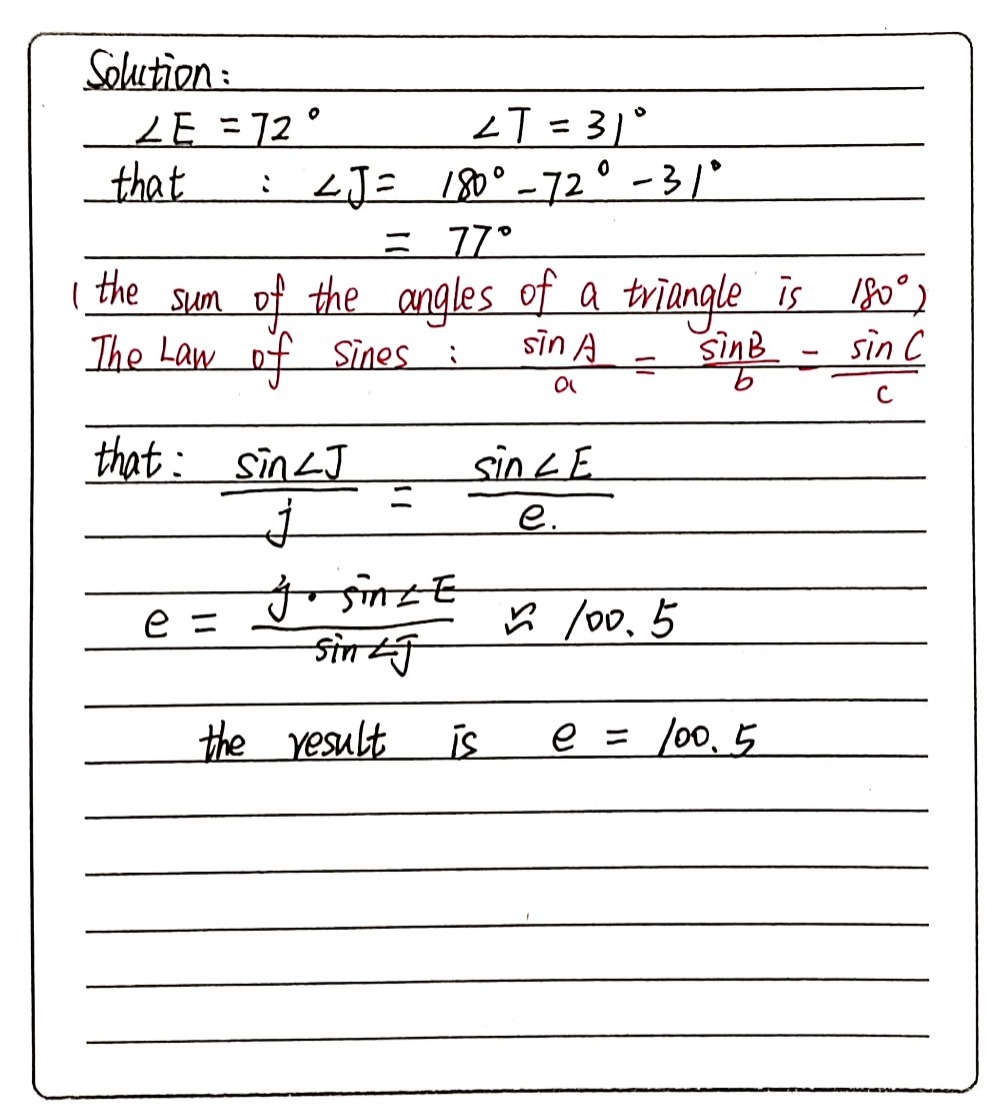 Solution:
∠E = 72° ∠T = 31°
that : ∠J = 180° - 72° - 31°
= 77°
(the sum of the angles of a triangle is 180°)
The Law of Sines : sin A / a = sin B / b - sin C / c
that: sin∠J / j = sin∠E / e.
e = j · sin∠E / sin∠J ≈ 100.5
the result is e = 100.5